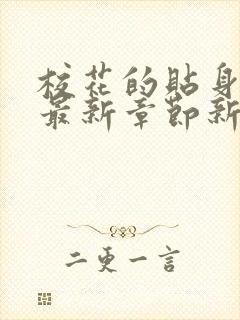 校花的贴身
最新章节新
二更一言